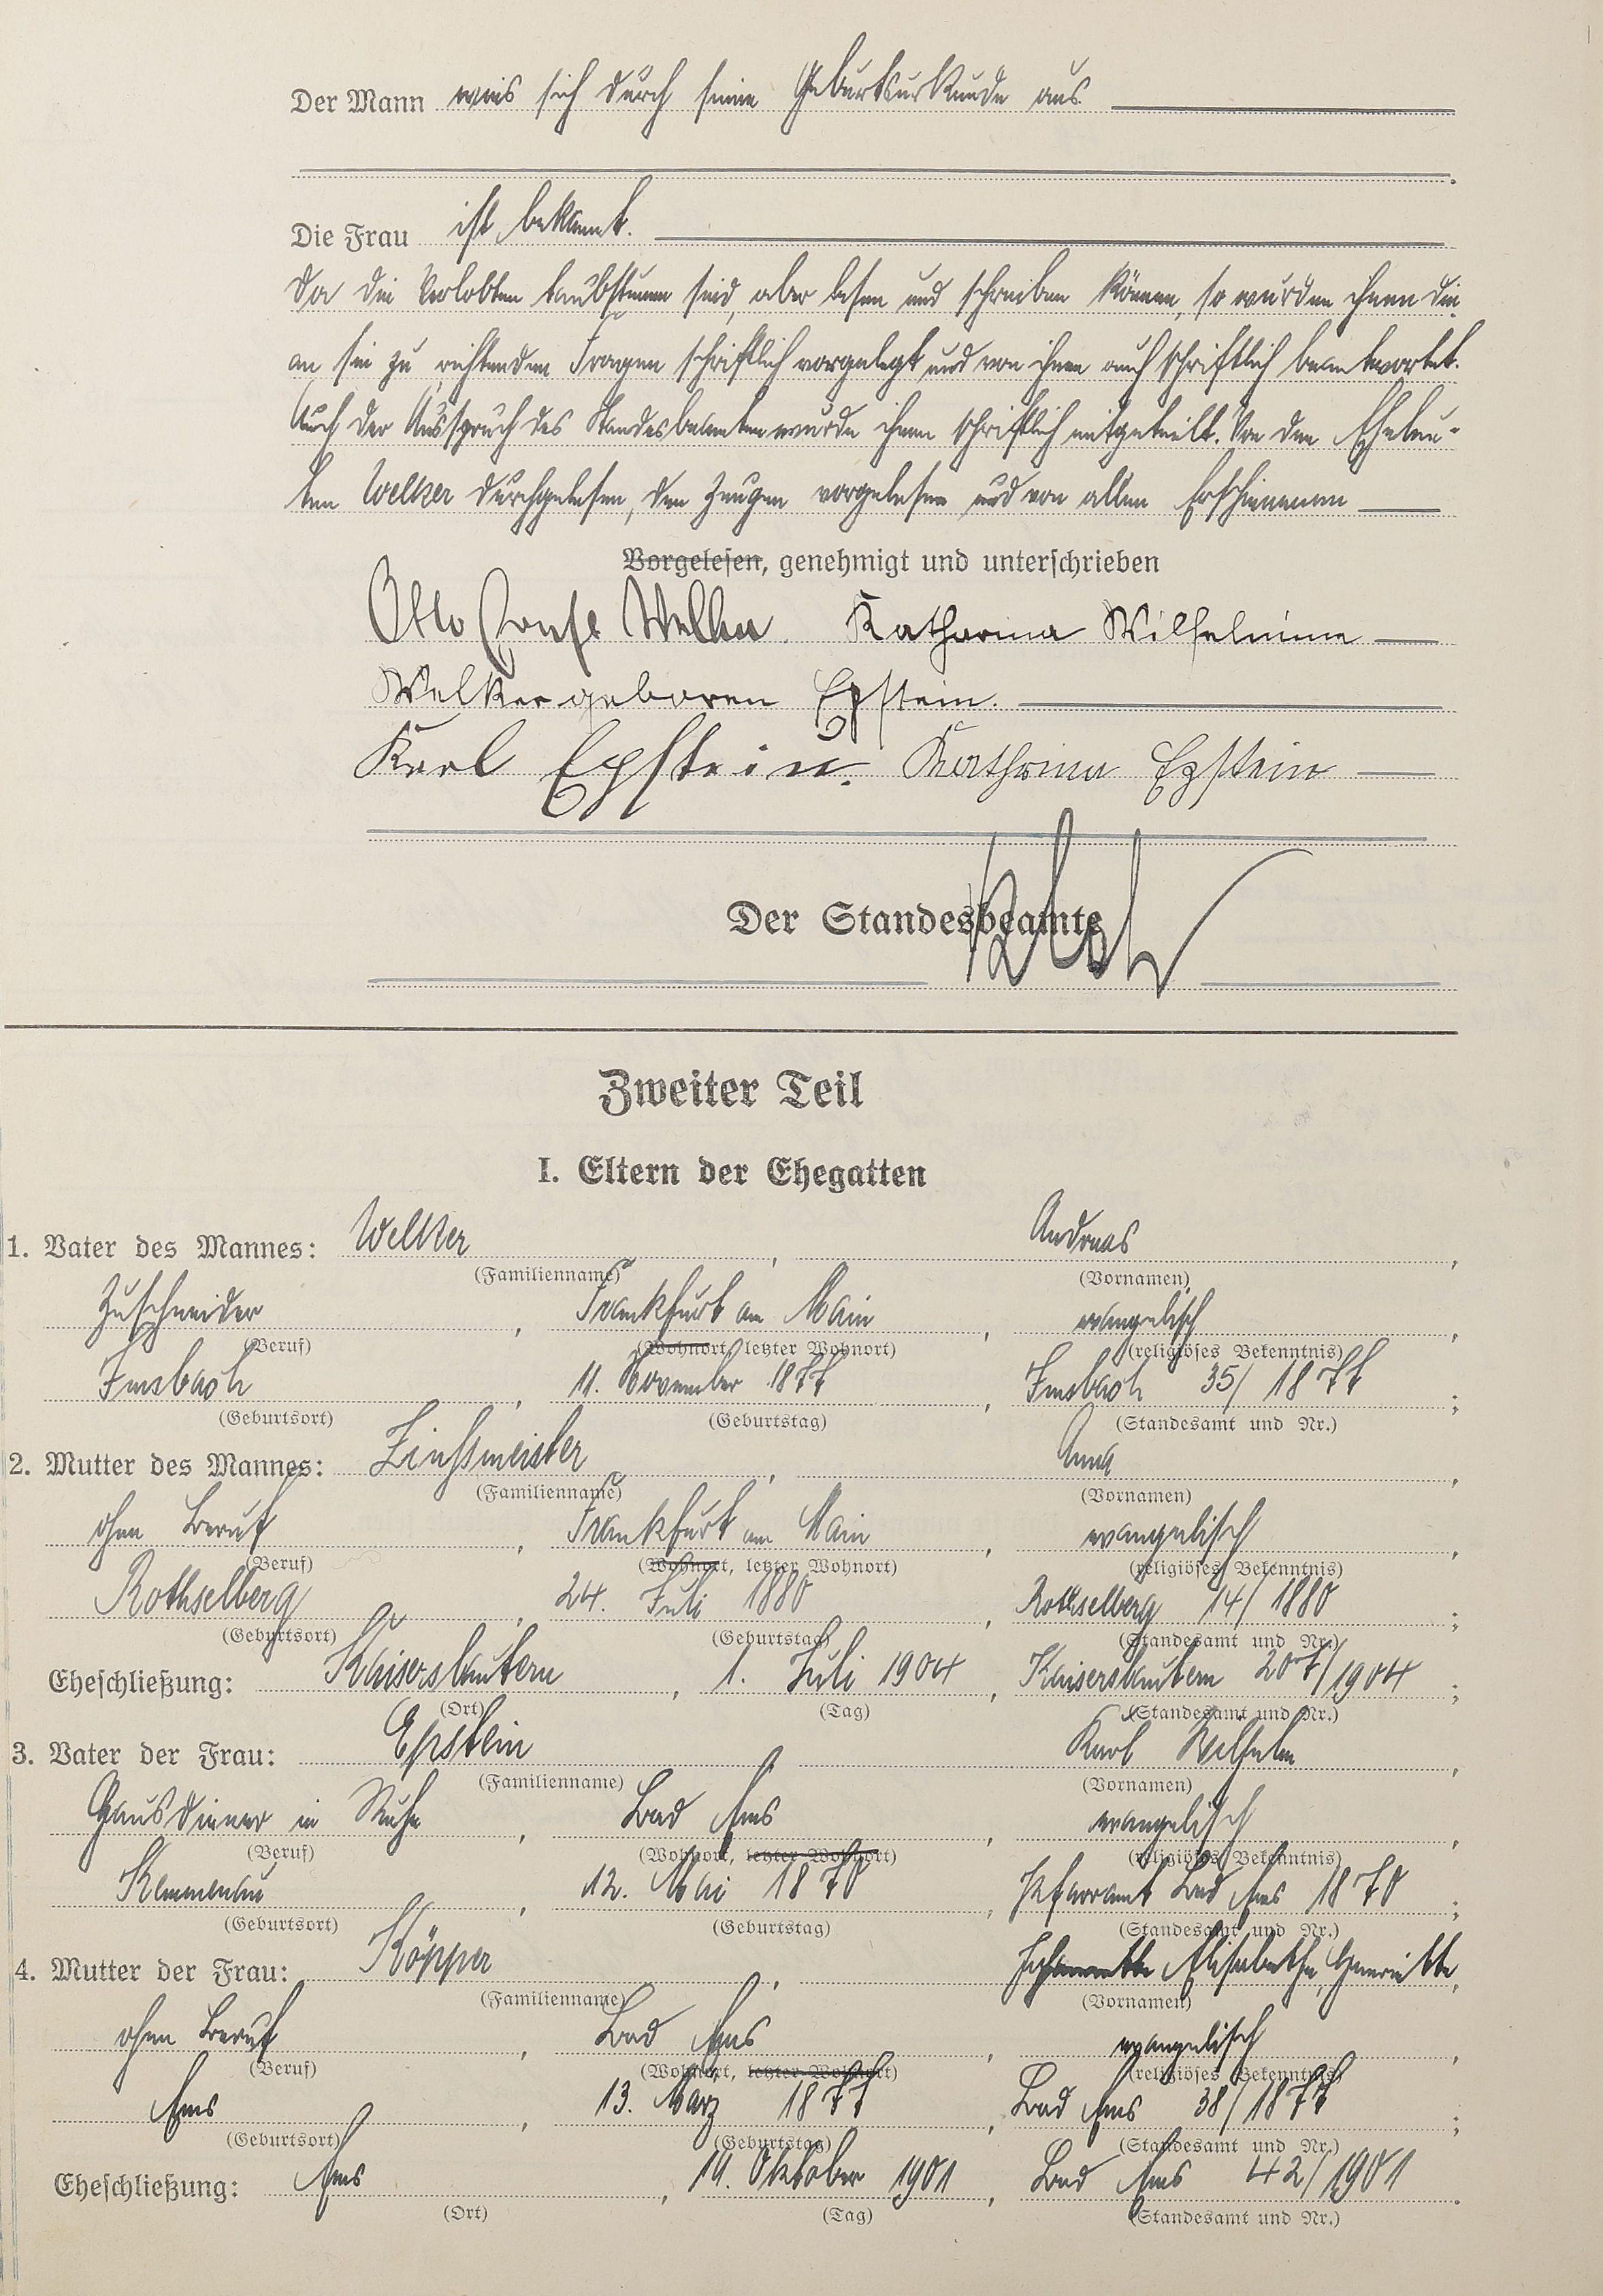 Der Mann wies sich durch seine Geburtsurkunde aus.
Die Frau ist bekannt.
Da die Verlobten taubstumm sind, aber lesen und schreiben können, so wurden ihnen die
an sie zu richtenden Fragen schriftlich vorgelegt und von ihnen auch schriftlich beantwortet.
Auch der Ausspruch des Standesbeamten wurde ihnen schriftlich mitgeteilt. Von den Eheleu-
ten Welker durchgelesen, den Zeugen vorgelesen und von allen Erschienenen
Vorgelesen, genehmigt und unterschrieben
Otto Ernst Welker. Katharina Wilhelmine
Welker geboren Epstein.
Karl Epstein. Katharina Epstein
Der Standesbeamte
Zweiter Teil
I. Eltern der Ehegatten
1. Vater des Mannes: Welker, Andreas,
(Familienname) (Vornamen)
Zuschneider, Frankfurt am Main, evangelisch,
(Beruf) (Wohnort, letzter Wohnort) (religiöses Bekenntnis)
Imsbach, 11. November 1877, Imsbach 35/1877;
(Geburtsort) (Geburtstag) (Standesamt und Nr.)
2. Mutter des Mannes: Zinßmeister, Anna,
(Familienname) (Vornamen)
ohne Beruf, Frankfurt am Main, evangelisch,
(Beruf) (Wohnort, letzter Wohnort) (religiöses Bekenntnis)
Rothselberg, 24. Juli 1880, Rothselberg 14/1880;
(Geburtsort) (Geburtstag) (Standesamt und Nr.)
Eheschließung: Kaiserslautern, 1. Juli 1904, Kaiserslautern 207/1904;
(Ort) (Tag) (Standesamt und Nr.)
3. Vater der Frau: Epstein, Karl Wilhelm,
(Familienname) (Vornamen)
Hausdiener in Ruhe, Bad Ems, evangelisch,
(Beruf) (Wohnort, letzter Wohnort) (religiöses Bekenntnis)
Kemmenau, 12. Mai 1870, Pfarramt Bad Ems 1870;
(Geburtsort) (Geburtstag) (Standesamt und Nr.)
4. Mutter der Frau: Köpper, Elisabethe, Henriette,
(Familienname) (Vornamen)
ohne Beruf, Bad Ems, evangelisch,
(Beruf) (Wohnort, letzter Wohnort) (religiöses Bekenntnis)
Ems, 13. März 1877, Bad Ems 38/1877;
(Geburtsort) (Geburtstag) (Standesamt und Nr.)
Eheschließung: Ems, 19. Oktober 1901, Bad Ems 42/1901.
(Ort) (Tag) (Standesamt und Nr.)